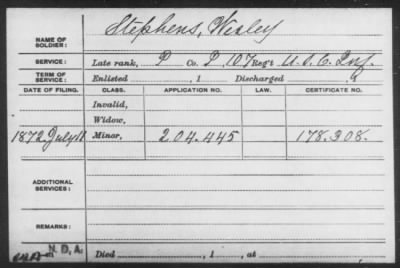 NAME OF SOLDIER: Stephens, Wesley
SERVICE: Late rank, P Co. D, 107 Reg't U.S.C. Inf.
TERM OF SERVICE: Enlisted , 1 Discharged , 1
DATE OF FILING. CLASS. APPLICATION NO. LAW. CERTIFICATE NO.
Invalid,
Widow,
1872 July 18 Minor, 204.445 178.308.
ADDITIONAL SERVICES:
REMARKS:
N.D.A.
Died , 1 , at